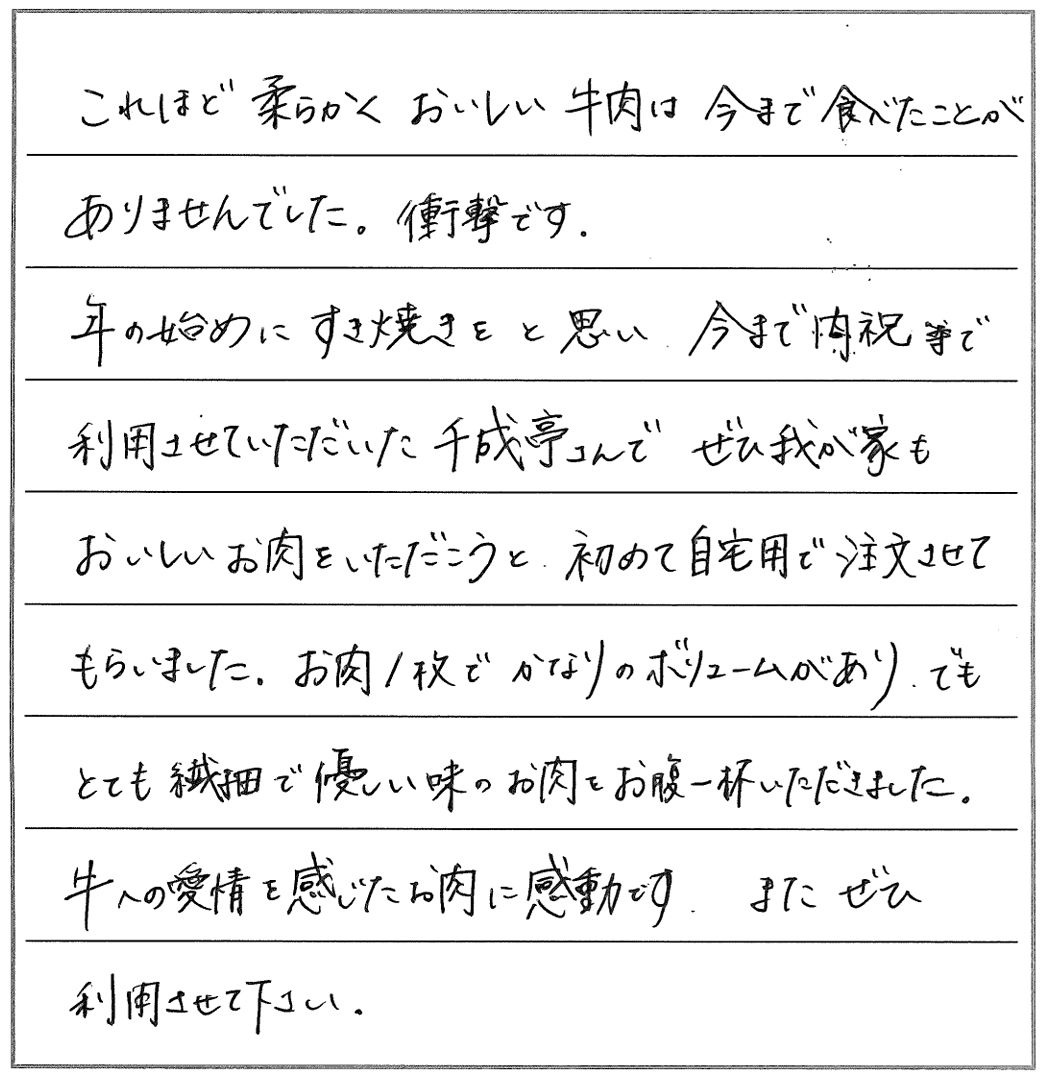 これほど柔らかくおいしい牛肉は今まで食べたことが
ありませんでした。衝撃です.
年の始めにすき焼きをと思い.今まで内祝等で
利用させていただいた千成亭さんでぜひ我が家も
おいしいお肉をいただこうと.初めて自宅用で注文させて
もらいました。お肉1枚でかなりのボリュームがあり.でも
とても繊細で優しい味のお肉をお腹一杯いただきました。
牛への愛情を感じたお肉に感動です.またぜひ
利用させて下さい.